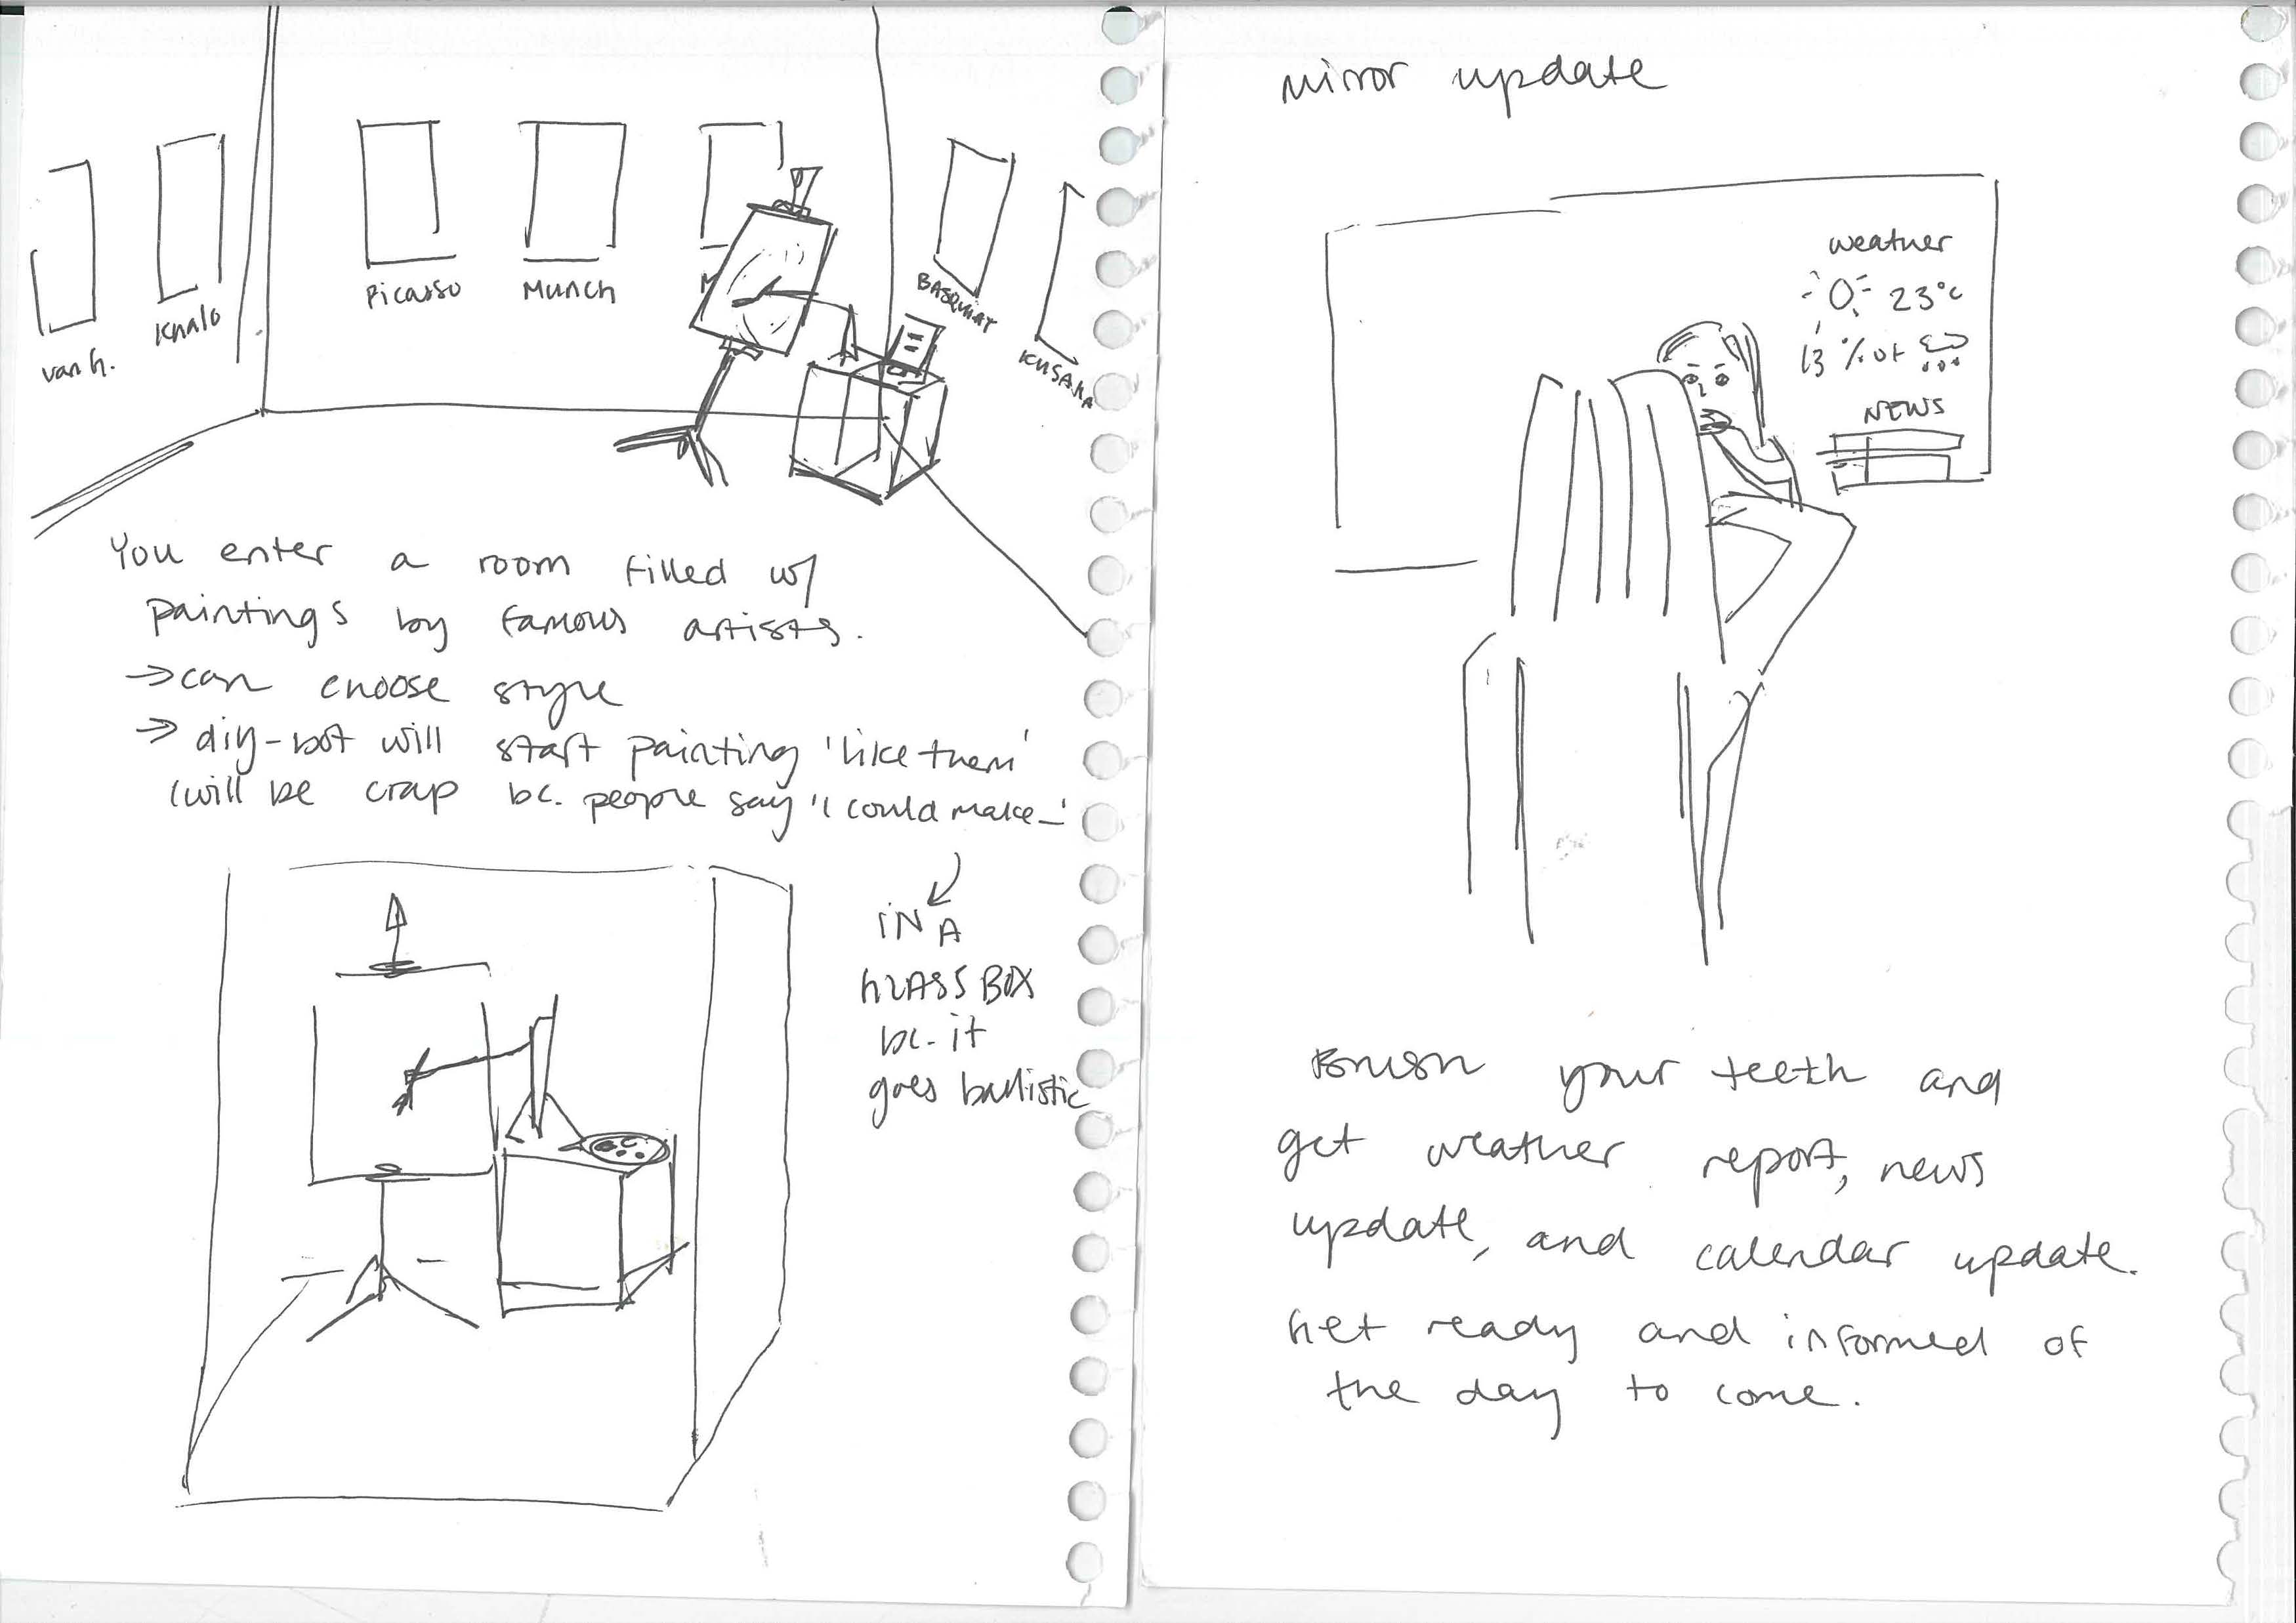 van G.
Khalo
Picasso
Munch
M
BASQUIAT
KUSAMA
You enter a room filled w/
paintings by famous artists.
→ can choose style
→ diy-bot will start painting 'like them'
(will be crap bc. people say 'I could make_'
IN A
GLASS BOX
bc. it
goes ballistic
mirror update
weather
23°C
13 % of
NEWS
Brush your teeth and
get weather report, news
update, and calendar update.
Get ready and informed of
the day to come.